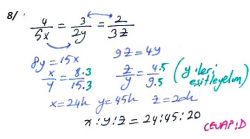 8/ 4/5x = 3/2y = 2/3z
8y = 15x 9z = 4y
x/y = 8.3/15.3 z/y = 4.5/9.5 (y'leri eşitleyelim)
x = 24k y = 45k z = 20k
x : y : z = 24 : 45 : 20
CEVAP : D